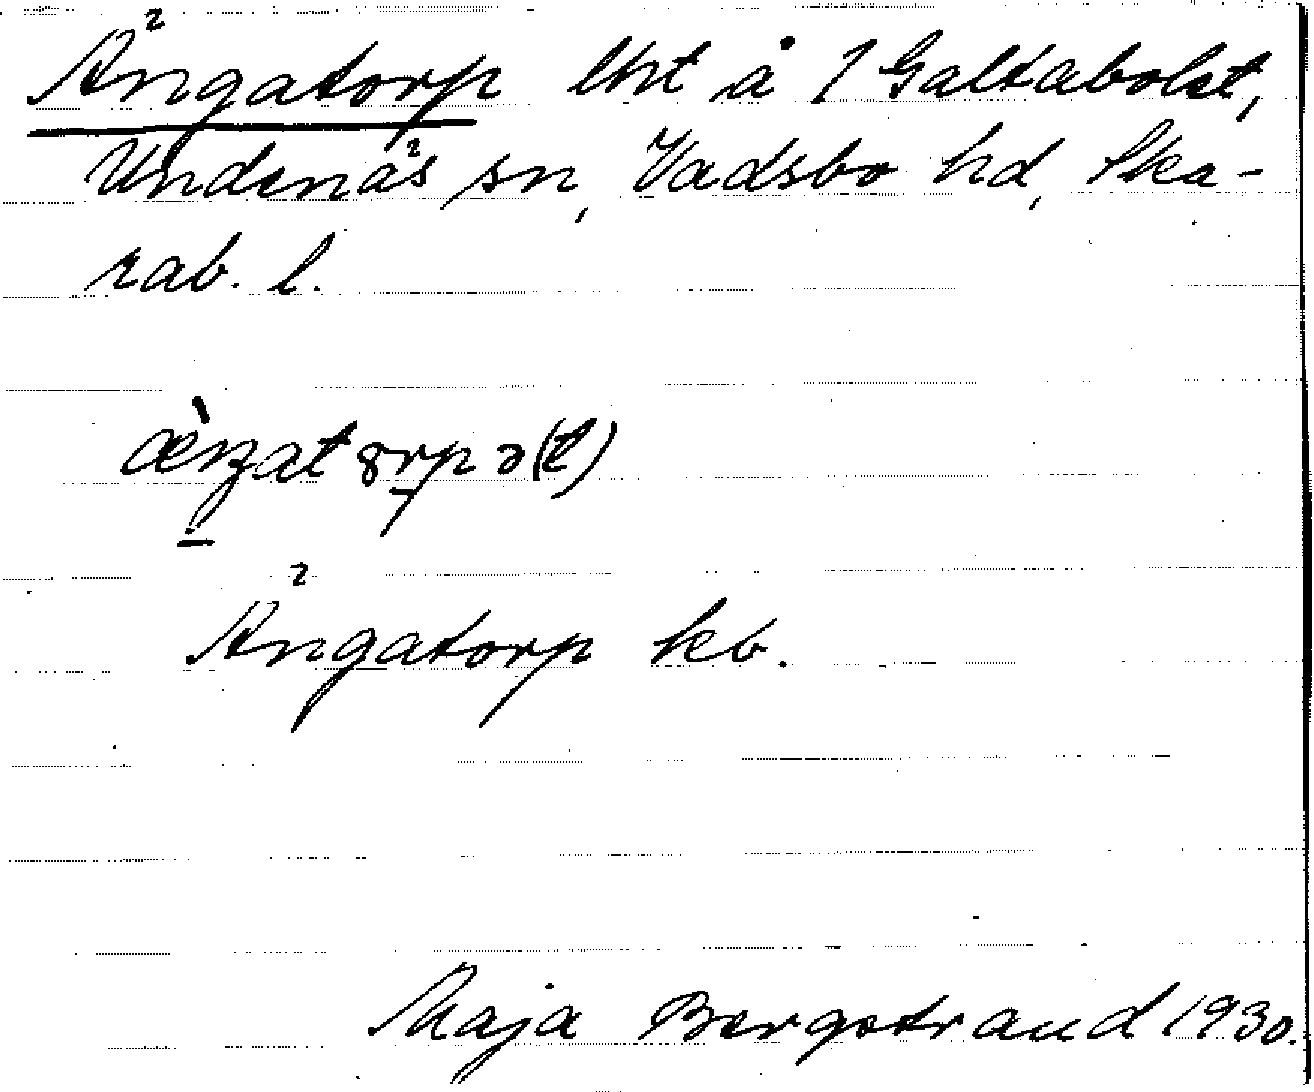 Ängatorp lht å 1 Galtabolet,
Undenäs sn, Vadsbo hd, Ska-
rab. l.
Ängatorp kb.
Maja Bergstrand 1930.